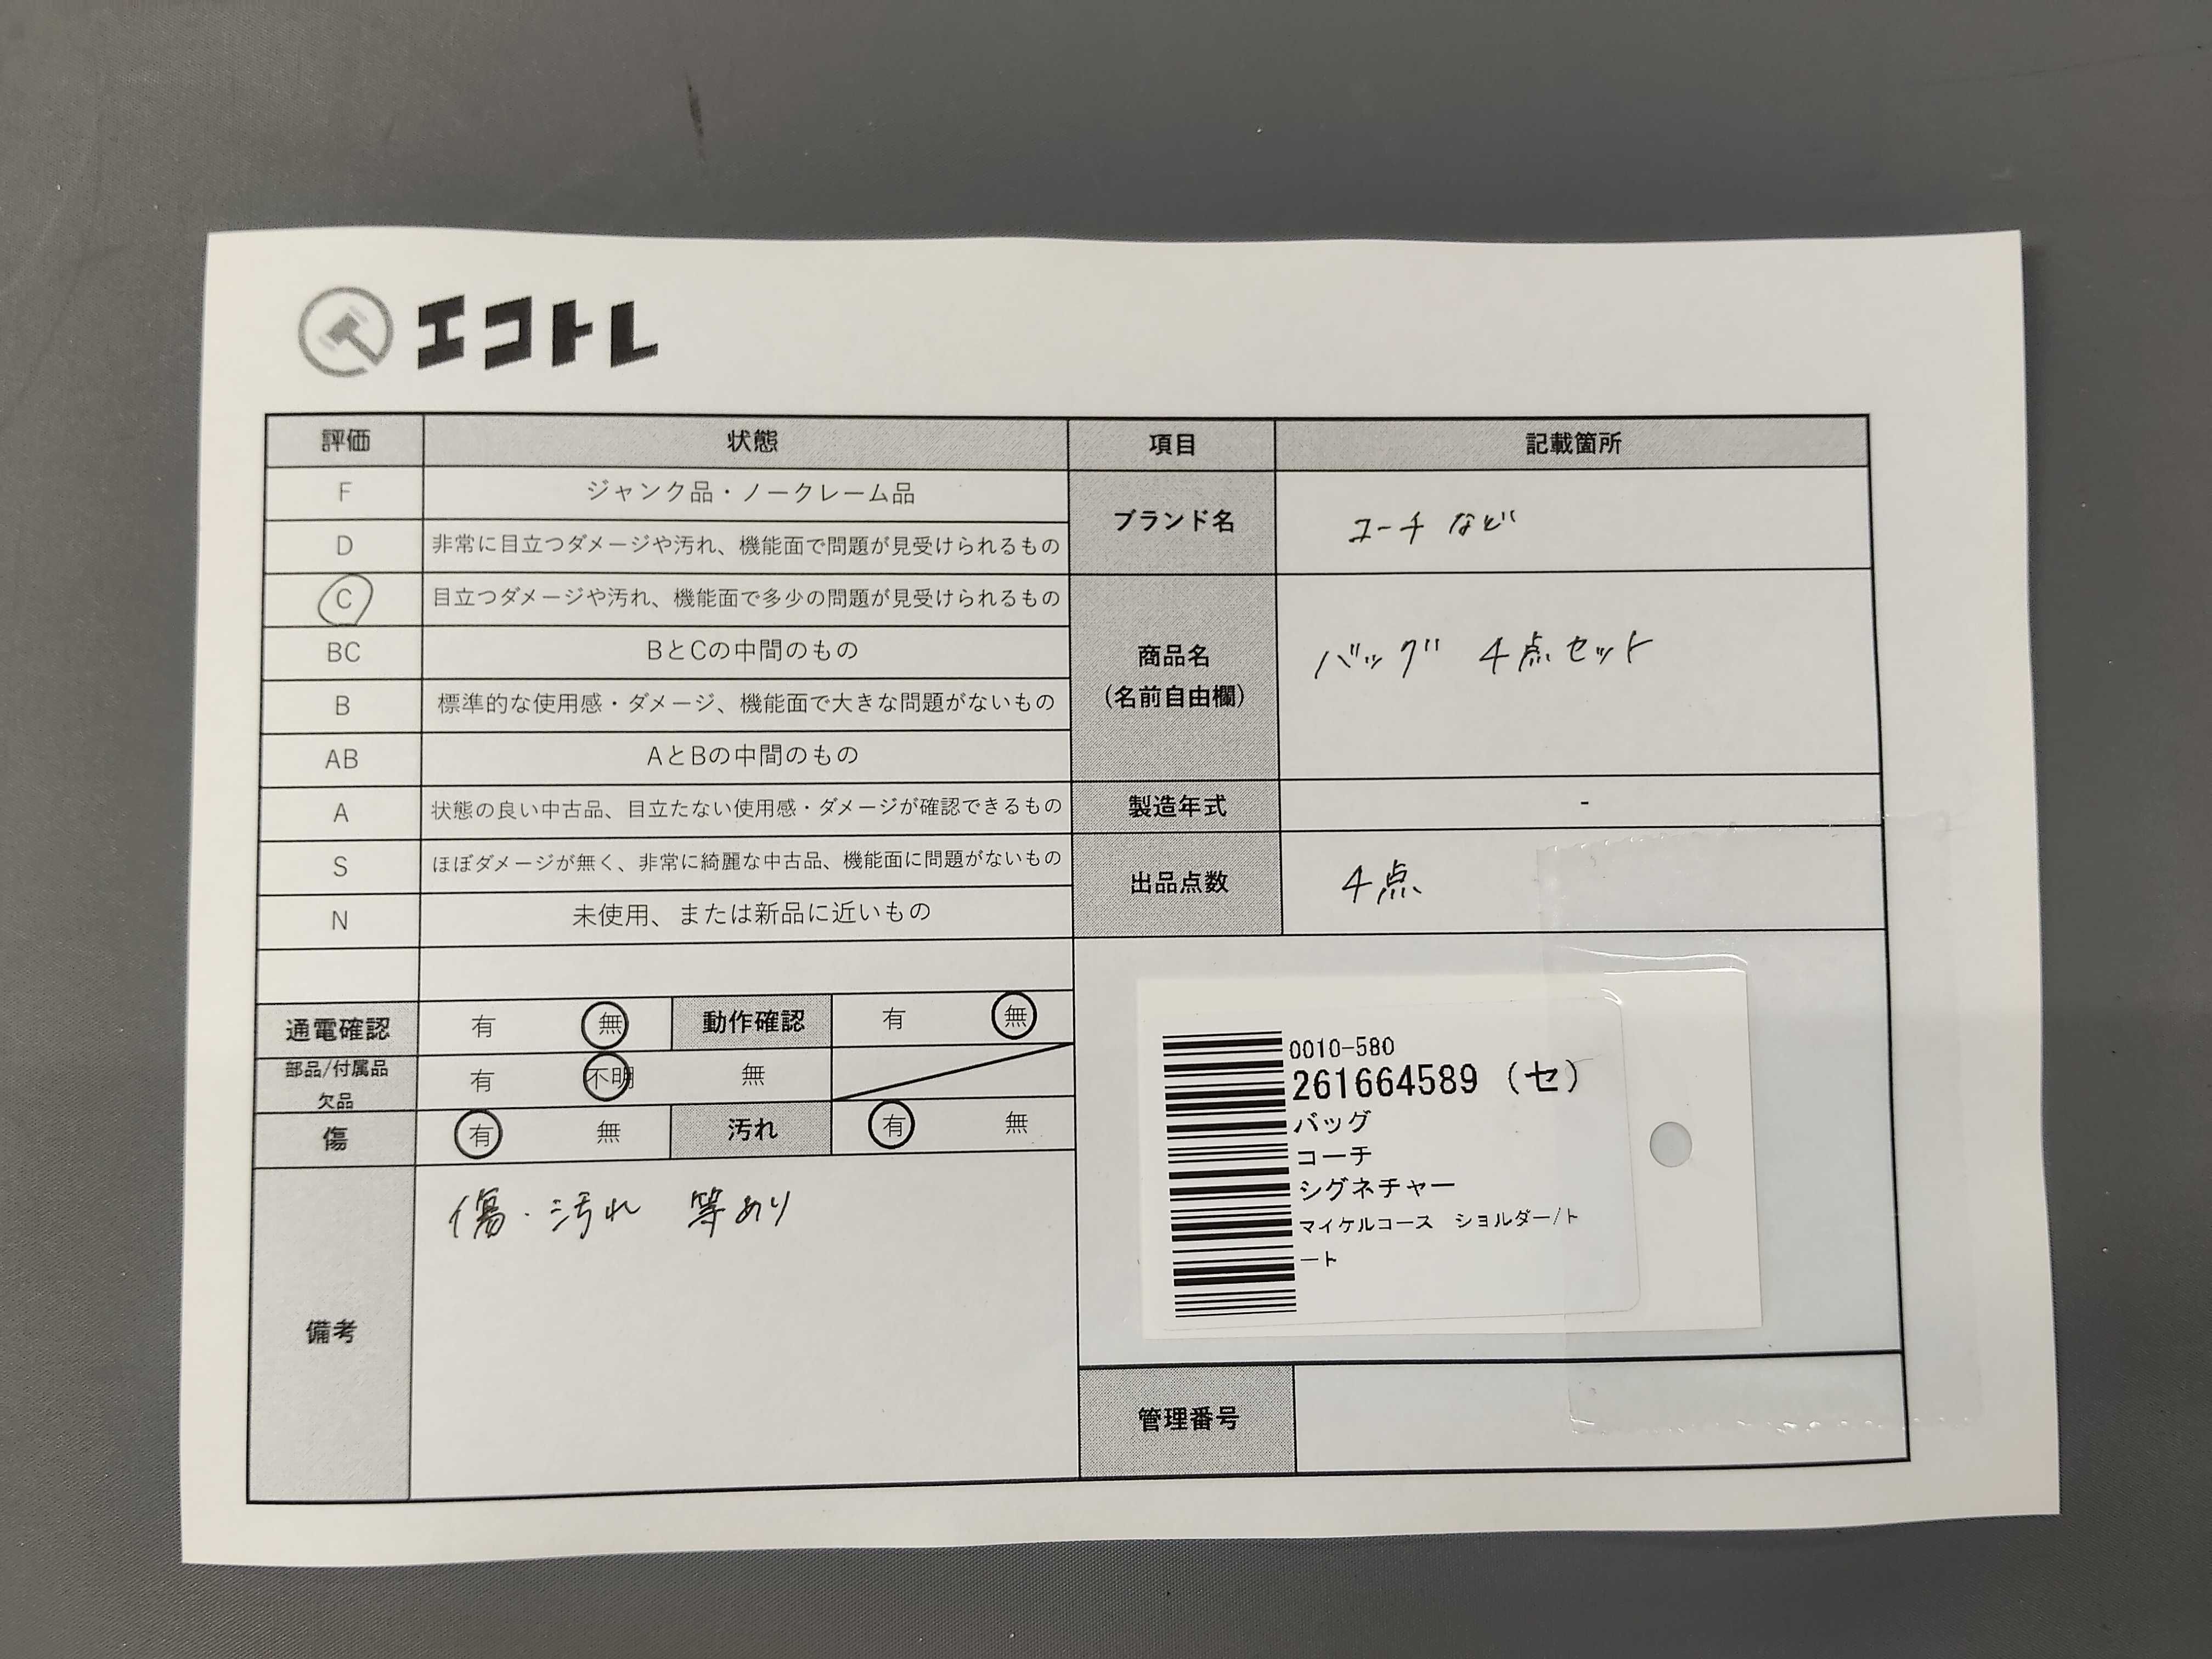 エコトレ
評価 状態 項目 記載箇所
F ジャンク品・ノークレーム品
D 非常に目立つダメージや汚れ、機能面で問題が見受けられるもの
ブランド名 コーチ など
C 目立つダメージや汚れ、機能面で多少の問題が見受けられるもの
BC BとCの中間のもの
B 標準的な使用感・ダメージ、機能面で大きな問題がないもの
商品名
(名前自由欄)
バッグ 4点セット
AB AとBの中間のもの
A 状態の良い中古品、目立たない使用感・ダメージが確認できるもの
製造年式 -
S ほぼダメージが無く、非常に綺麗な中古品、機能面に問題がないもの
出品点数 4点
N 未使用、または新品に近いもの
通電確認 有 無 動作確認 有 無
部品/付属品
欠品
有 不明 無
傷 有 無 汚れ 有 無
備考
傷・汚れ 等あり
0010-580
261664589（セ）
バッグ
コーチ
シグネチャー
マイケルコース ショルダー/ト
ート
管理番号